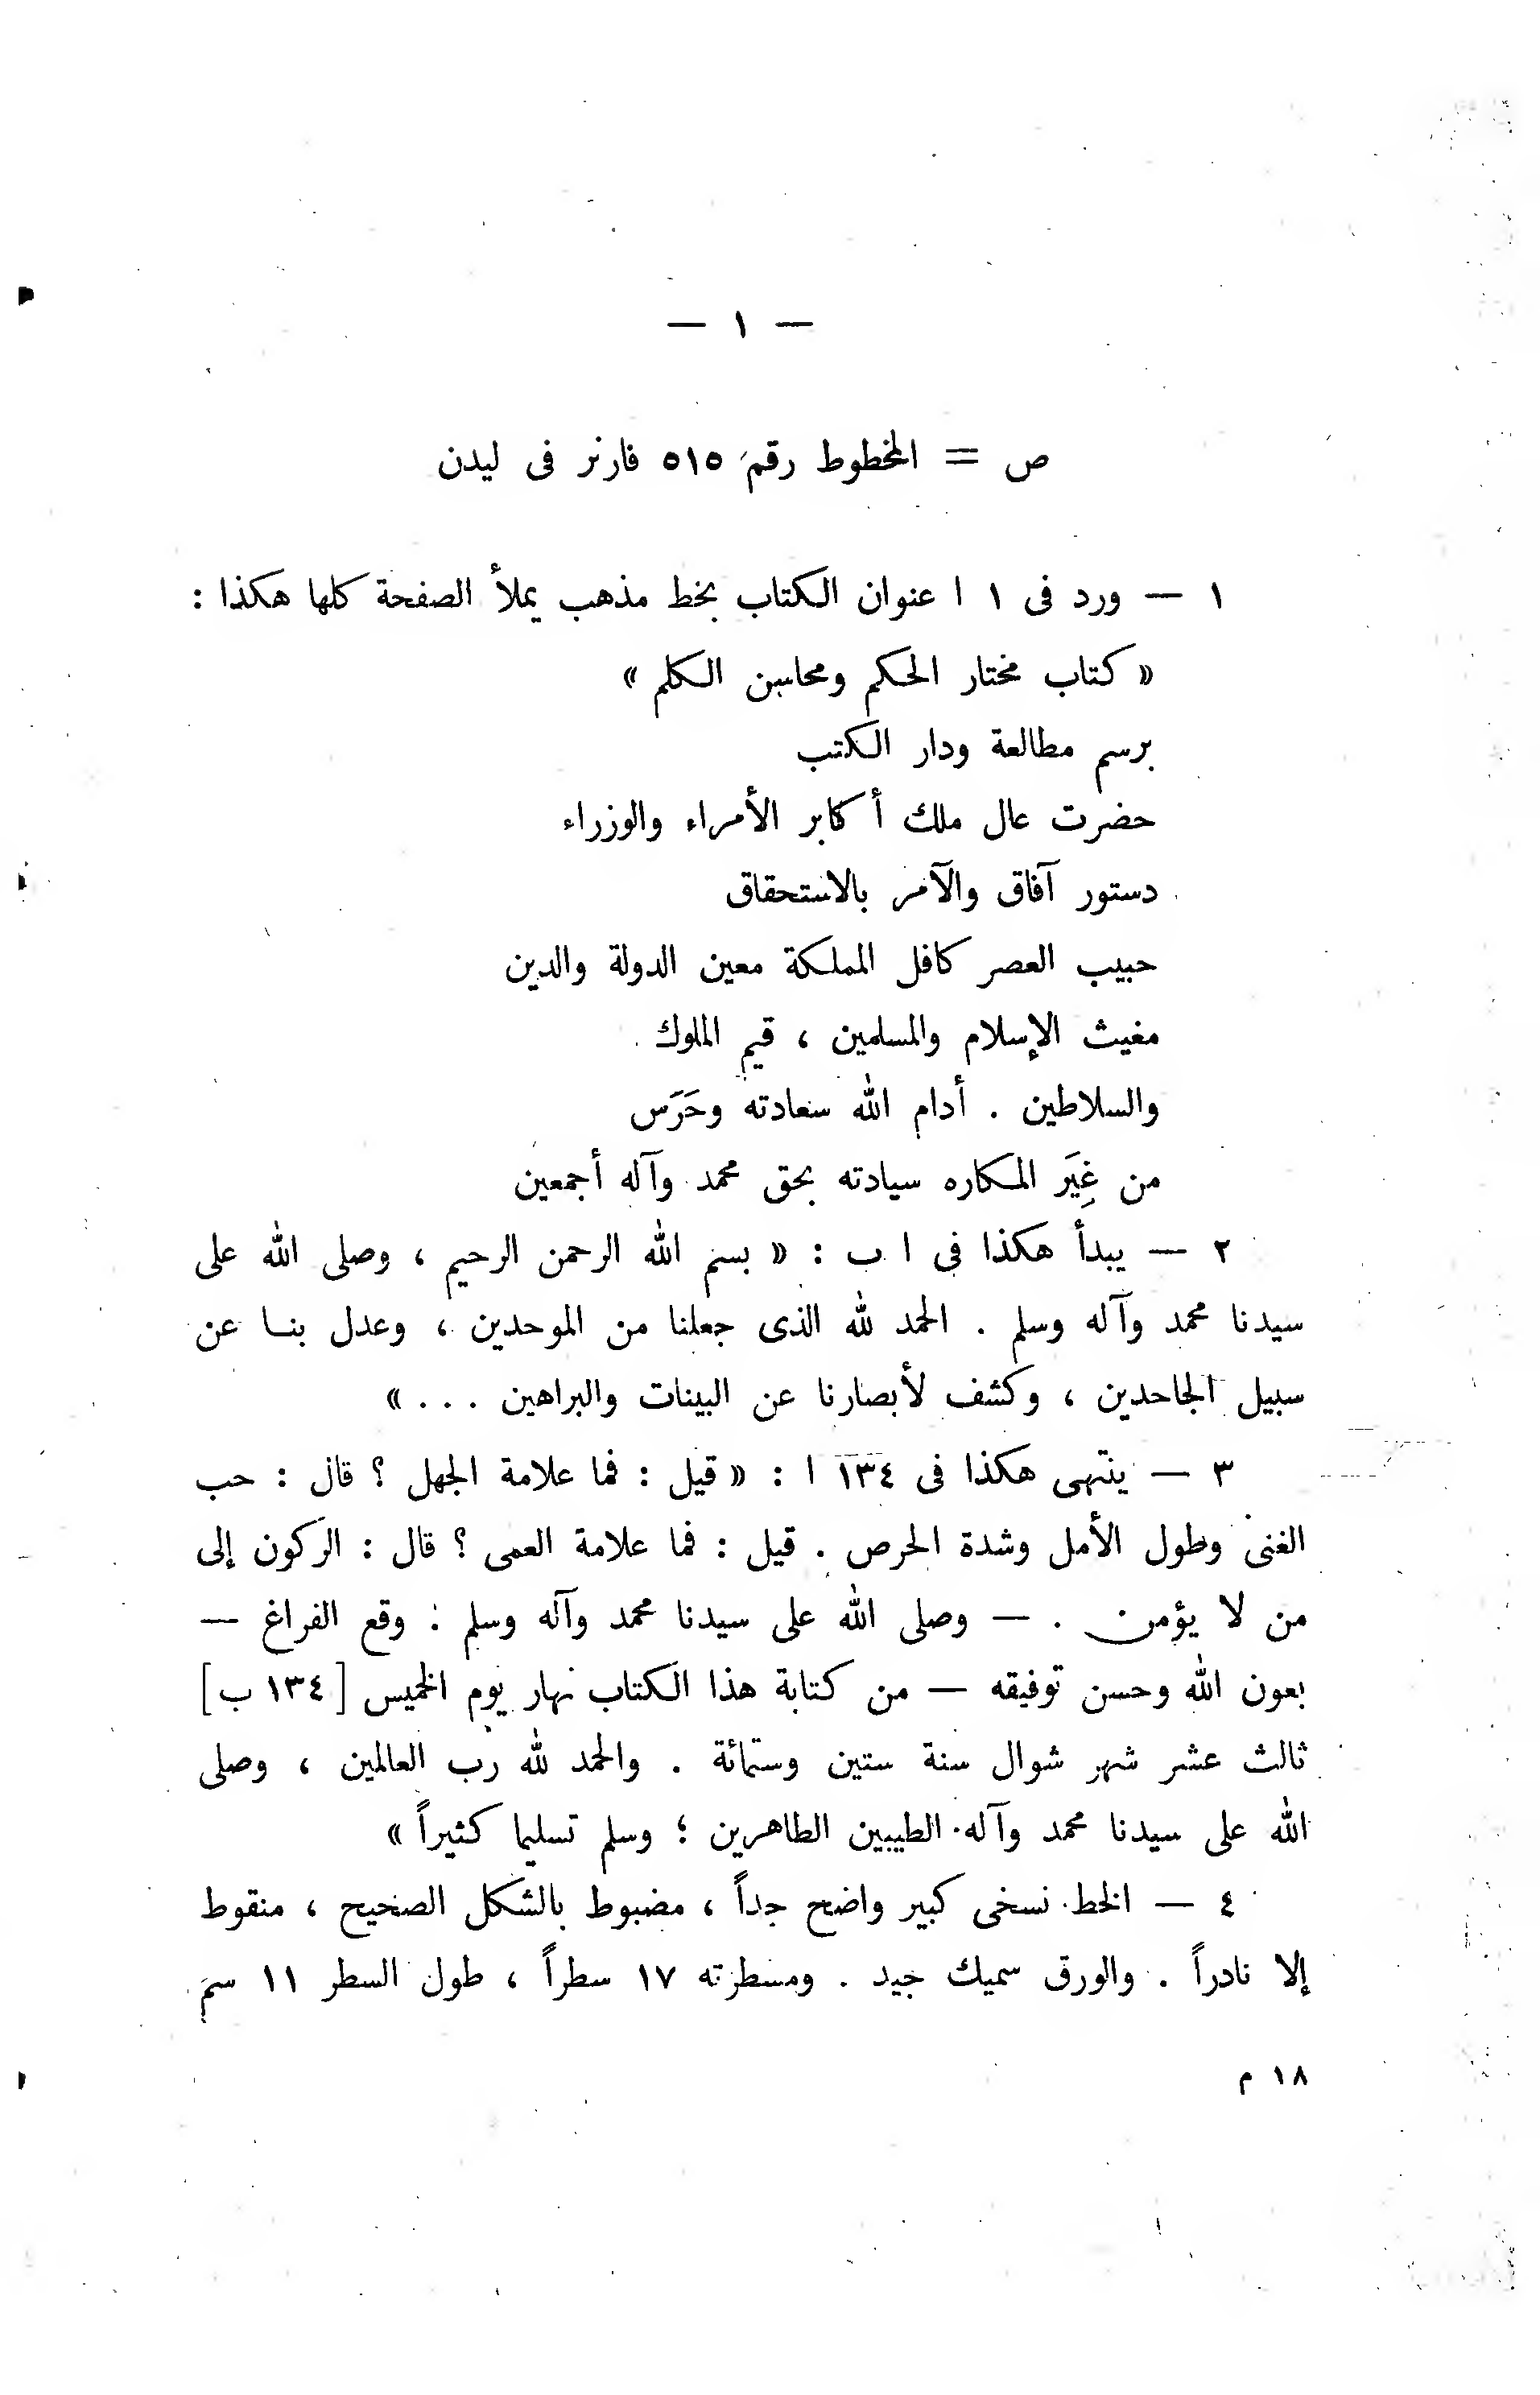 — ١ —
ص = المخطوط رقم ٥١٥ فارنر فى ليدن
١ — ورد فى ١ ا عنوان الكتاب بخط مذهب يملأ الصفحة كلها هكذا :
« كتاب مختار الحكم ومحاسن الكلم »
برسم مطالعة ودار الكتب
حضرت عال ملك أكابر الأمراء والوزراء
دستور آفاق والآمر بالاستحقاق
حبيب العصر كافل المملكة معين الدولة والدين
مغيث الإسلام والمسلمين ، قيم الملوك
والسلاطين . أدام الله سعادته وحَرَس
من غِيَر المكاره سيادته بحق محمد وآله أجمعين
٢ — يبدأ هكذا فى ١ ب : « بسم الله الرحمن الرحيم ، وصلى الله على
سيدنا محمد وآله وسلم . الحمد لله الذى جعلنا من الموحدين ، وعدل بنا عن
سبيل الجاحدين ، وكشف لأبصارنا عن البينات والبراهين . . . »
٣ — ينتهى هكذا فى ١٣٤ ا : « قيل : فما علامة الجهل ؟ قال : حب
الغنى وطول الأمل وشدة الحرص . قيل : فما علامة العمى ؟ قال : الركون إلى
من لا يؤمن . — وصلى الله على سيدنا محمد وآله وسلم : وقع الفراغ —
بعون الله وحسن توفيقه — من كتابة هذا الكتاب نهار يوم الخميس [ ١٣٤ ب ]
ثالث عشر شهر شوال سنة ستين وستمائة . والحمد لله رب العالمين ، وصلى
الله على سيدنا محمد وآله الطيبين الطاهرين ؛ وسلم تسليما كثيراً »
٤ — الخط نسخى كبير واضح جداً ، مضبوط بالشكل الصحيح ، منقوط
إلا نادراً . والورق سميك جيد . ومسطرته ١٧ سطراً ، طول السطر ١١ سم
١٨ م